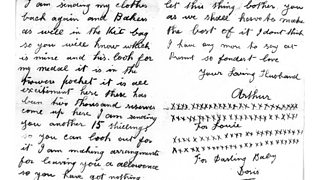 I am sending my clothes
back again and Bakers
as well in the Kit bag
so you will know which
is mine and his. look for
my medal it is in the
trousers pocket it is all
excitement here there has
been two thousand
come up here I am sending
you another 15 shillings
so you can look out for
it I am making arrangements
for leaving you a allowence
so you have got nothing
let this thing bother you
as we shall have to make
the best of it I dont think
I have any more to say at
so fondest love
Your Loving Husband
Arthur
xxxxxxxxxxxxxxxxxx
For Louie
xxxxxxxxxxxxxxxxxx
For Darling Baby
Doris